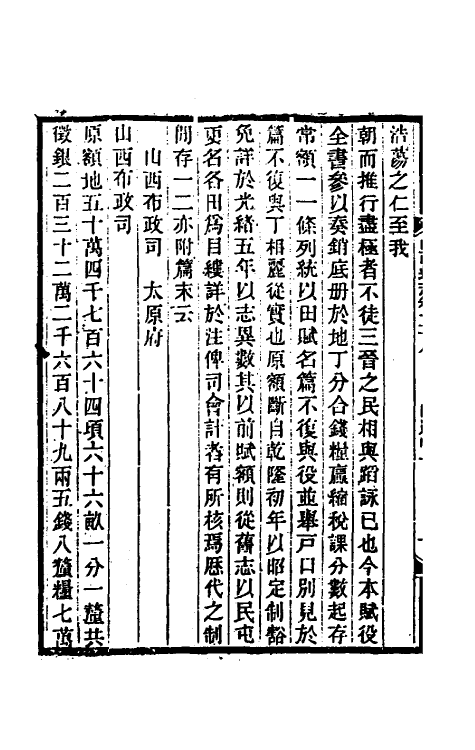 浩蕩之仁至我
朝而推行盡極者不徒三晉之民相與蹈詠已也今本賦役
全書參以奏銷底册於地丁分合錢糧贏縮稅課分數起存
常額一一條列統以田賦名篇不復與役並舉戸口別見於
篇不復與丁相麗從實也原額斷自乾隆初年以昭定制豁
免詳於光緒五年以志異數其以前賦額則從舊志以民屯
更名各田爲目縷詳於注俾司會計者有所核焉歴代之制
閒存一二亦附篇末云
山西布政司　太原府
山西布政司
原額地五十萬四千七百六十四頃六十六畝一分一釐共
徵銀二百三十二萬二千六百八十九兩五錢八釐糧七萬